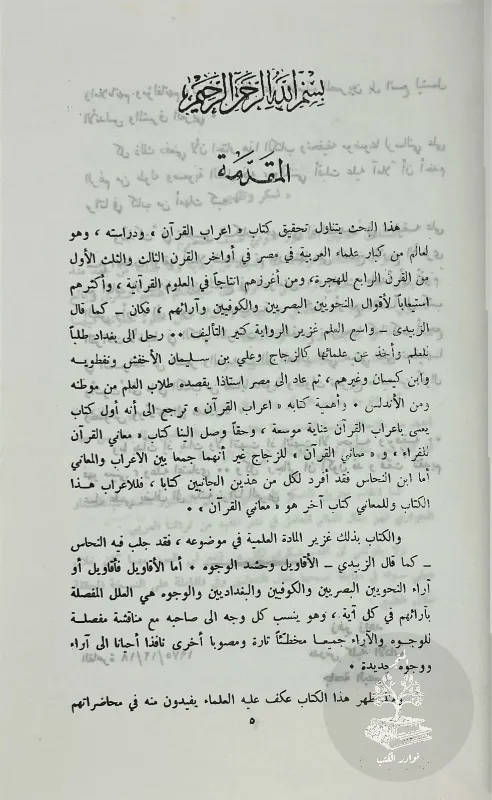 بسم الله الرحمن الرحيم
المقدمة
هذا البحث يتناول تحقيق كتاب « اعراب القرآن » ودراسته ، وهو
لعالم من كبار علماء العربية في مصر في أواخر القرن الثالث والثلث الأول
من القرن الرابع للهجرة، ومن أغزرهم انتاجاً في العلوم القرآنية ، وأكثرهم
استيعاباً لأقوال النحويين البصريين والكوفيين وآرائهم ، فكان ــ كما قال
الزبيدي ــ واسع العلم غزير الرواية كثير التأليف ٠٠ رحل الى بغداد طلباً
للعلم وأخذ عن علمائها كالزجاج وعلي بن سليمان الأخفش ونفطويه
وابن كيسان وغيرهم ، ثم عاد الى مصر استاذا يقصده طلاب العلم من موطنه
ومن الأندلس ٠ وأهمية كتابه « اعراب القرآن » ترجع الى أنه أول كتاب
يعنى باعراب القرآن عناية موسعة ، وحقاً وصل الينا كتاب « معاني القرآن
للفراء » و « معاني القرآن » للزجاج غير أنهما جمعا بين الاعراب والمعاني
أما ابن النحاس فقد أفرد لكل من هذين الجانبين كتابا ، فللاعراب هذا
الكتاب وللمعاني كتاب آخر هو « معاني القرآن » ٠
والكتاب بذلك غزير المادة العلمية في موضوعه ، فقد جلب فيه النحاس
ــ كما قال الزبيدي ــ الأقاويل وحشد الوجوه ٠ أما الأقاويل فأقاويل أو
آراء النحويين البصريين والكوفيين والبغداديين والوجوه هي العلل المفصلة
بآرائهم في كل آية ، وهو ينسب كل وجه الى صاحبه مع مناقشة مفصلة
للوجوه والآراء جميعا مخطئاً تارة ومصوبا أخرى نافذا أحيانا الى آراء
ووجوه جديدة ٠
ومنذ ظهر هذا الكتاب عكف عليه العلماء يفيدون منه في محاضراتهم
٥
نوادر الكتب